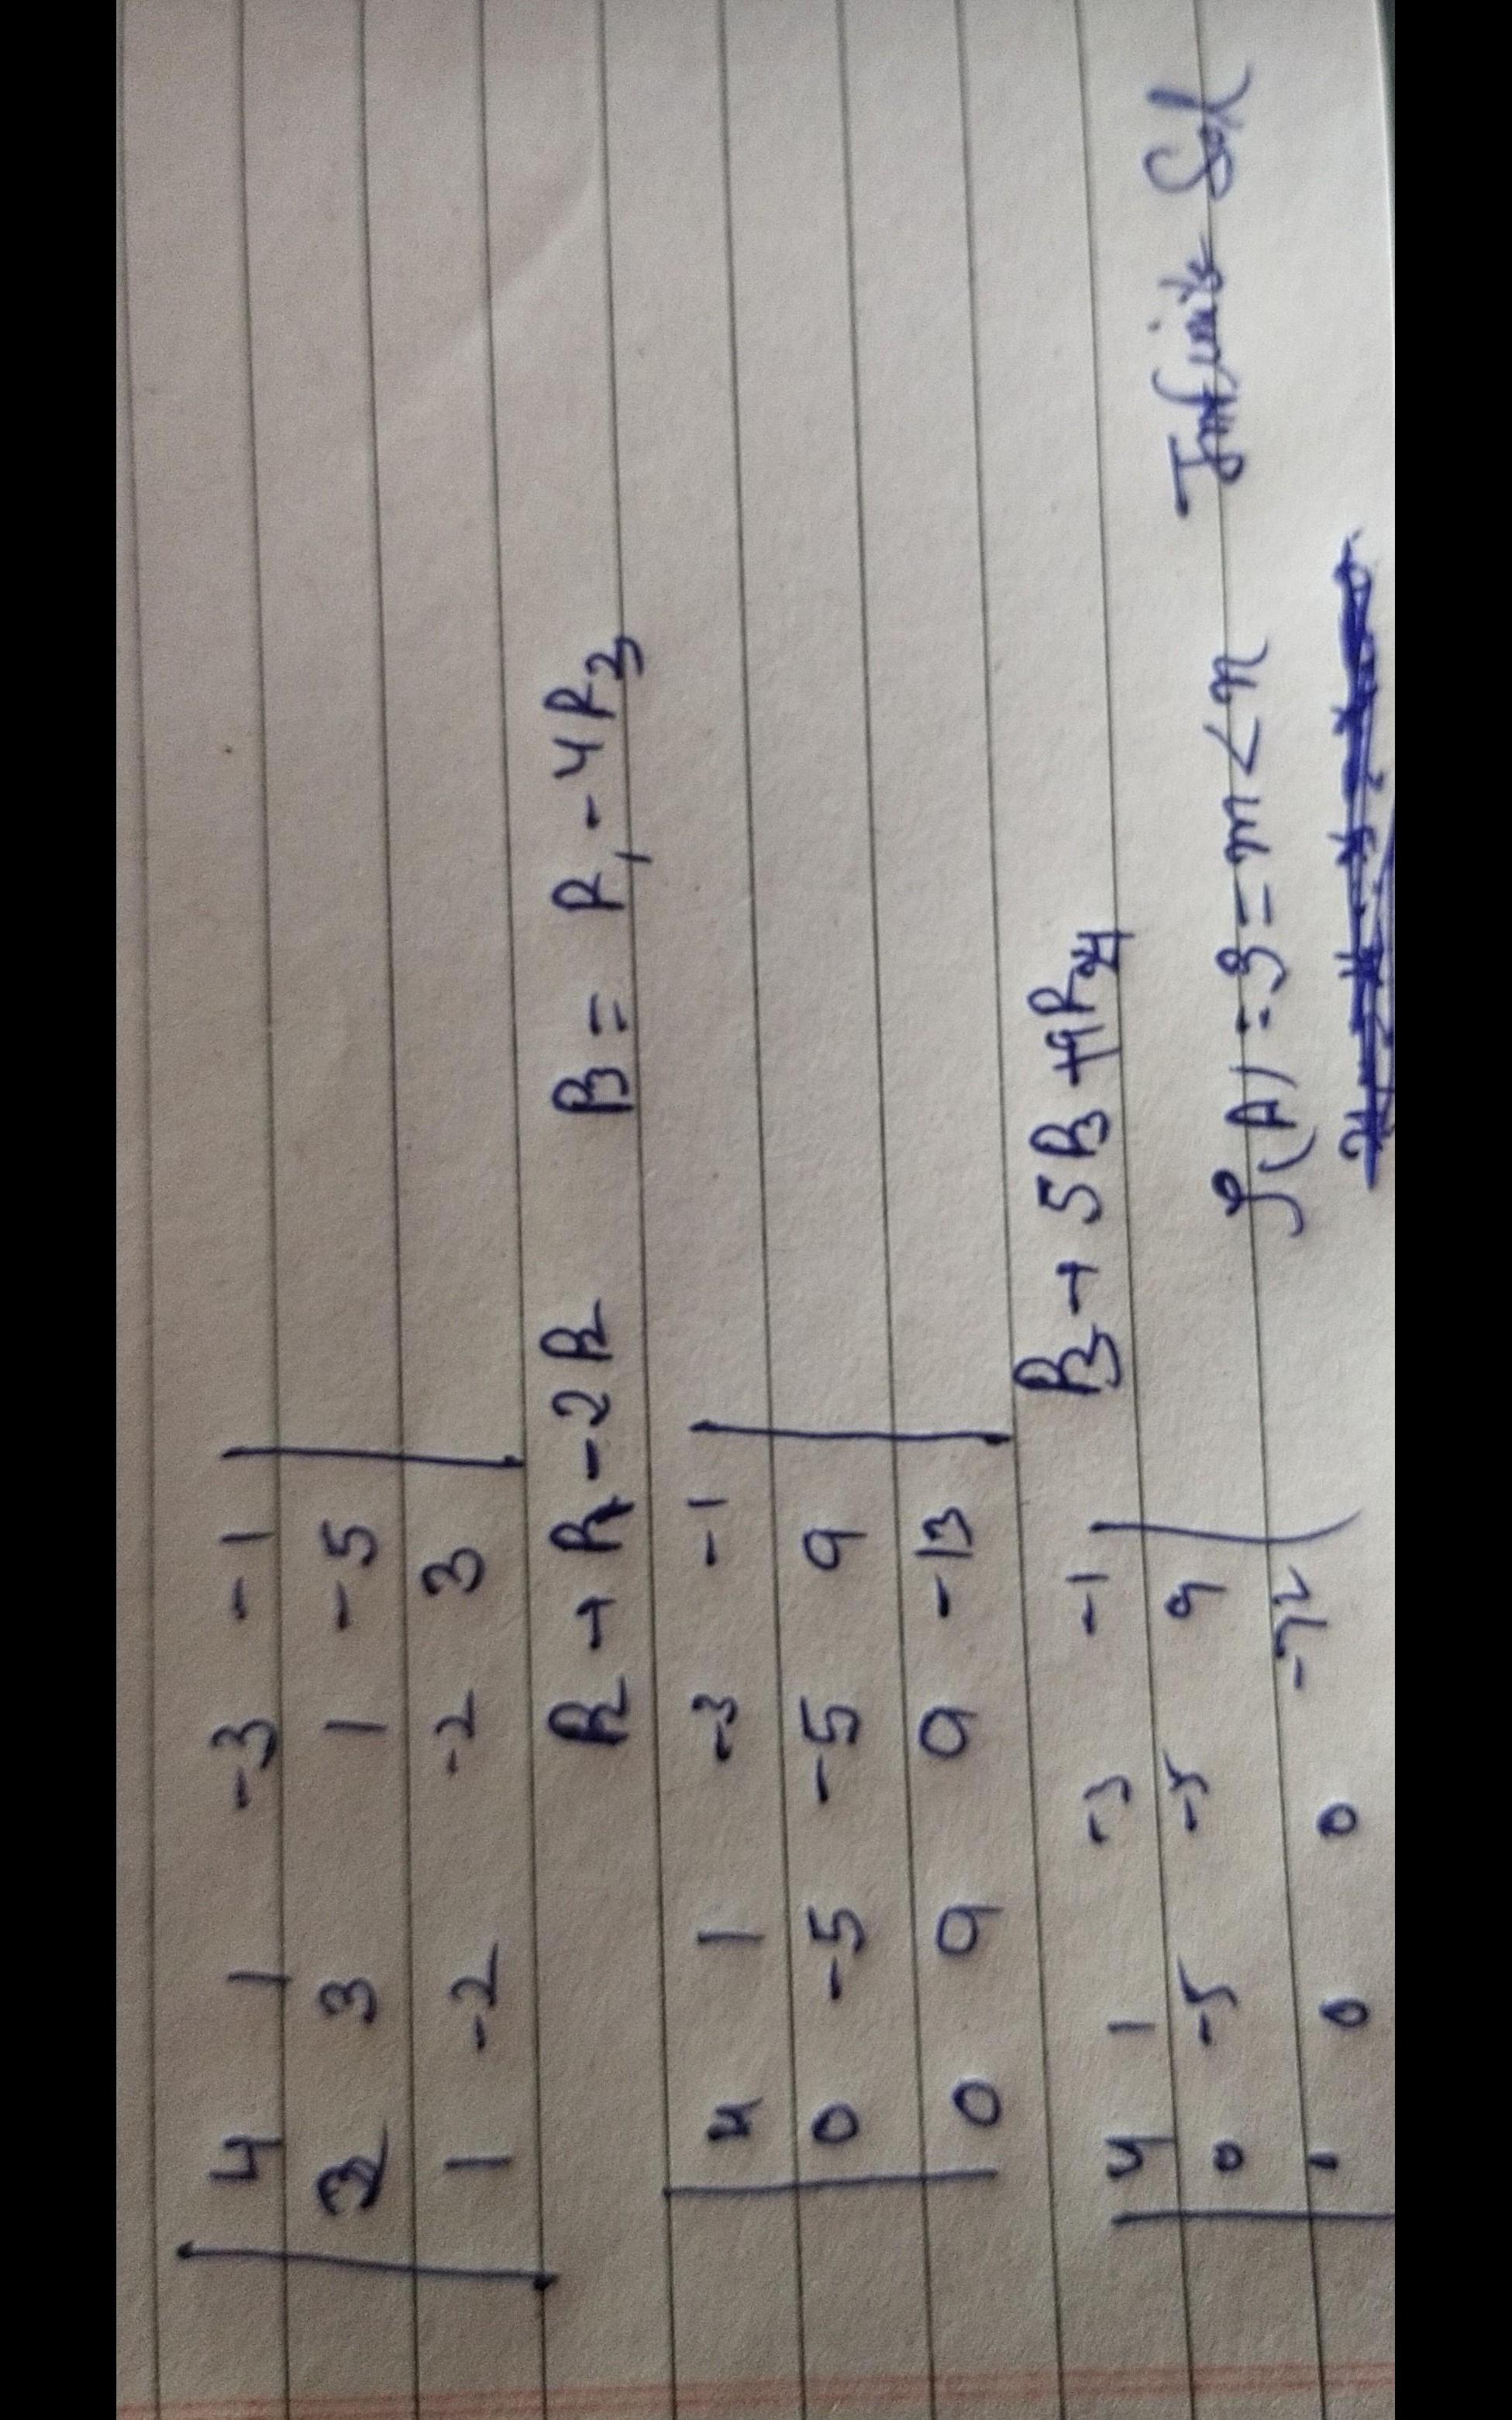 4 1 -3 -1
2 3 1 -5
1 -2 -2 3
R2 → R1 - 2R2 R3 = R1 - 4R3
4 1 -3 -1
0 -5 -5 9
0 9 9 -13
R3 → 5R3 + 9R2
4 1 -3 -1
0 -5 -5 9
0 0
ρ(A) = 3 = m < n Infinite Sol